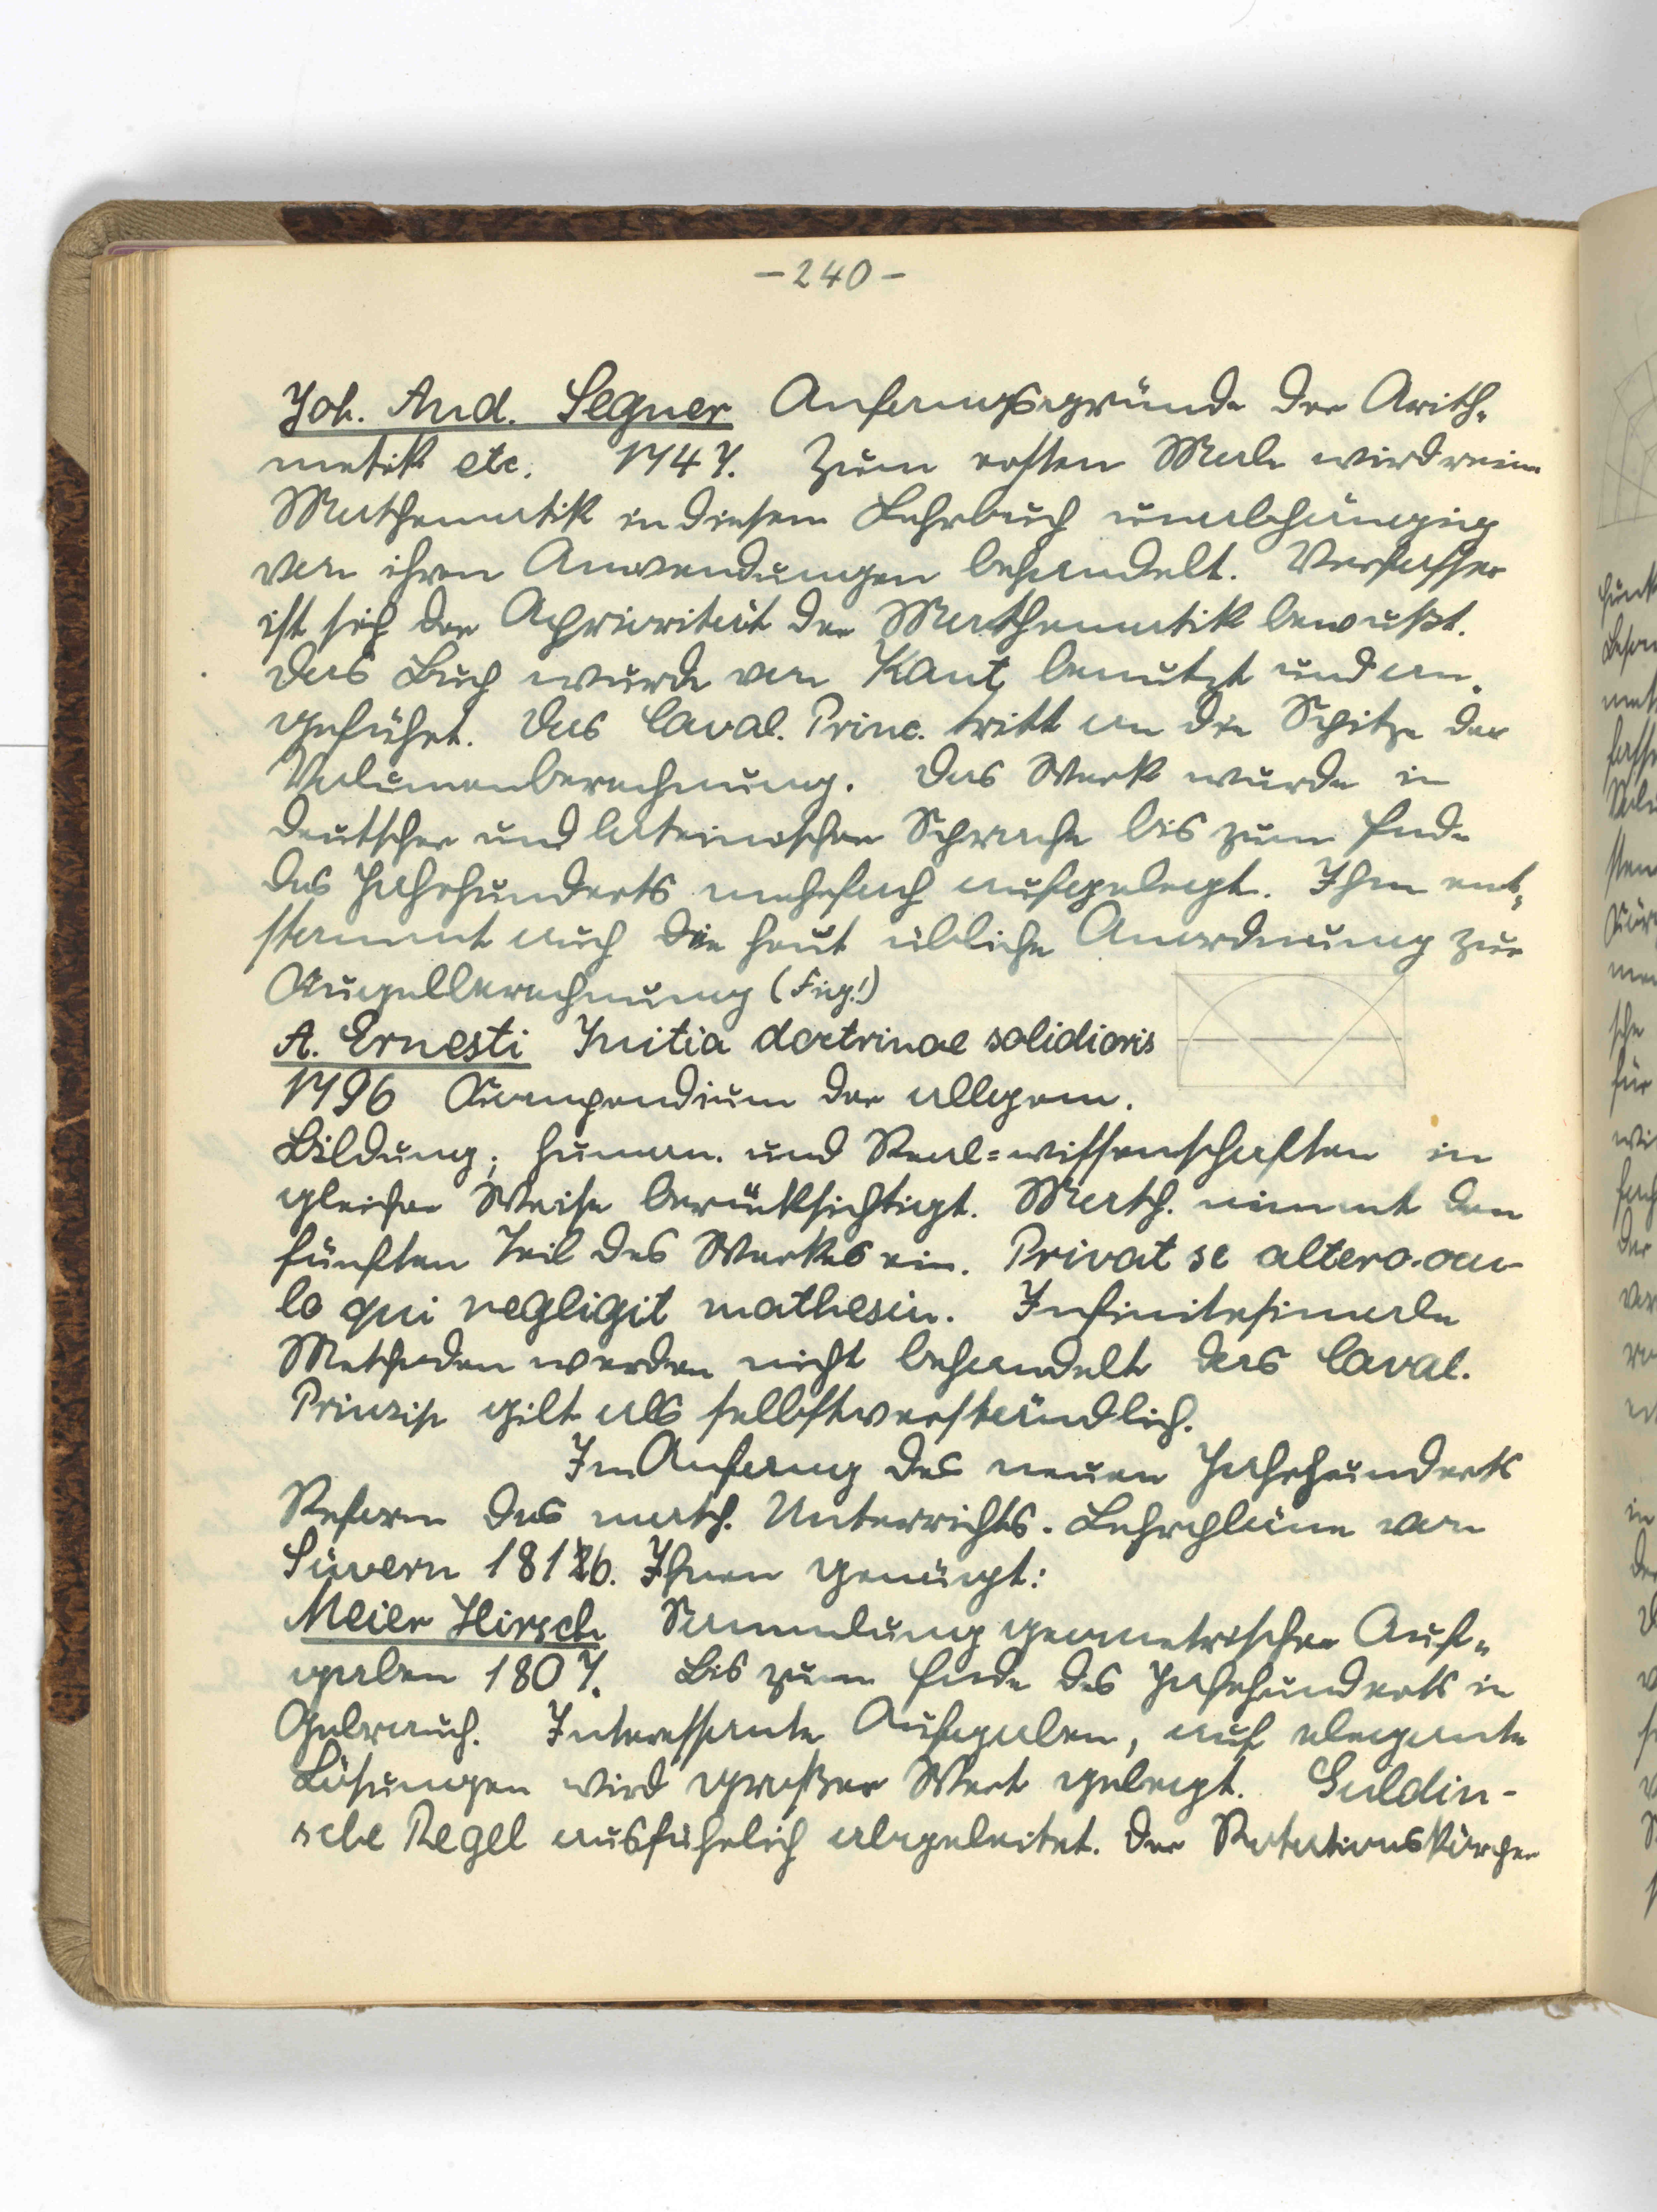 -240-
Joh. And. Segner Anfangsgründe der Arith-
metik etc. 1747. Zum ersten Male wird reine
Mathematik in diesem Lehrbuch unabhängig
von ihren Anwendungen behandelt. Verfasser
ist sich der Apriorität der Mathematik bewußt.
Das Buch wurde von Kant benutzt und an-
geführt. Das Caval. Princ. tritt an die Spitze der
Volumenberechnung. Das Werk wurde in
deutscher und lateinischer Sprache bis zum Ende
des Jahrhunderts mehrfach aufgelegt. Ihm ent-
stammt auch die heut übliche Anordnung zur
Kugelberechnung (Fig.!)
A. Ernesti Initia doctrinae solidioris
1796 Kompendium der allgem.
Bildung; human. und Real-wissenschaften in
gleicher Weise berücksichtigt. Math. nimmt den
fünften Teil des Werkes ein. Privat se altero ocu-
lo qui negligit mathesin. Infinitesimale
Methoden werden nicht behandelt das Caval.
Prinzip gilt als selbstverständlich.
Im Anfang des neuen Jahrhunderts
Reform des math. Unterrichts. Lehrpläne von
Süvern 1816. Ihnen genügt:
Meier Hirsch Sammlung geometrischer Auf-
gaben 1807. Bis zum Ende des Jahrhunderts in
Gebrauch. Interessante Aufgaben, auf elegante
Lösungen wird großer Wert gelegt. Guldin-
sche Regel ausführlich abgeleitet. Der Rotationskörper